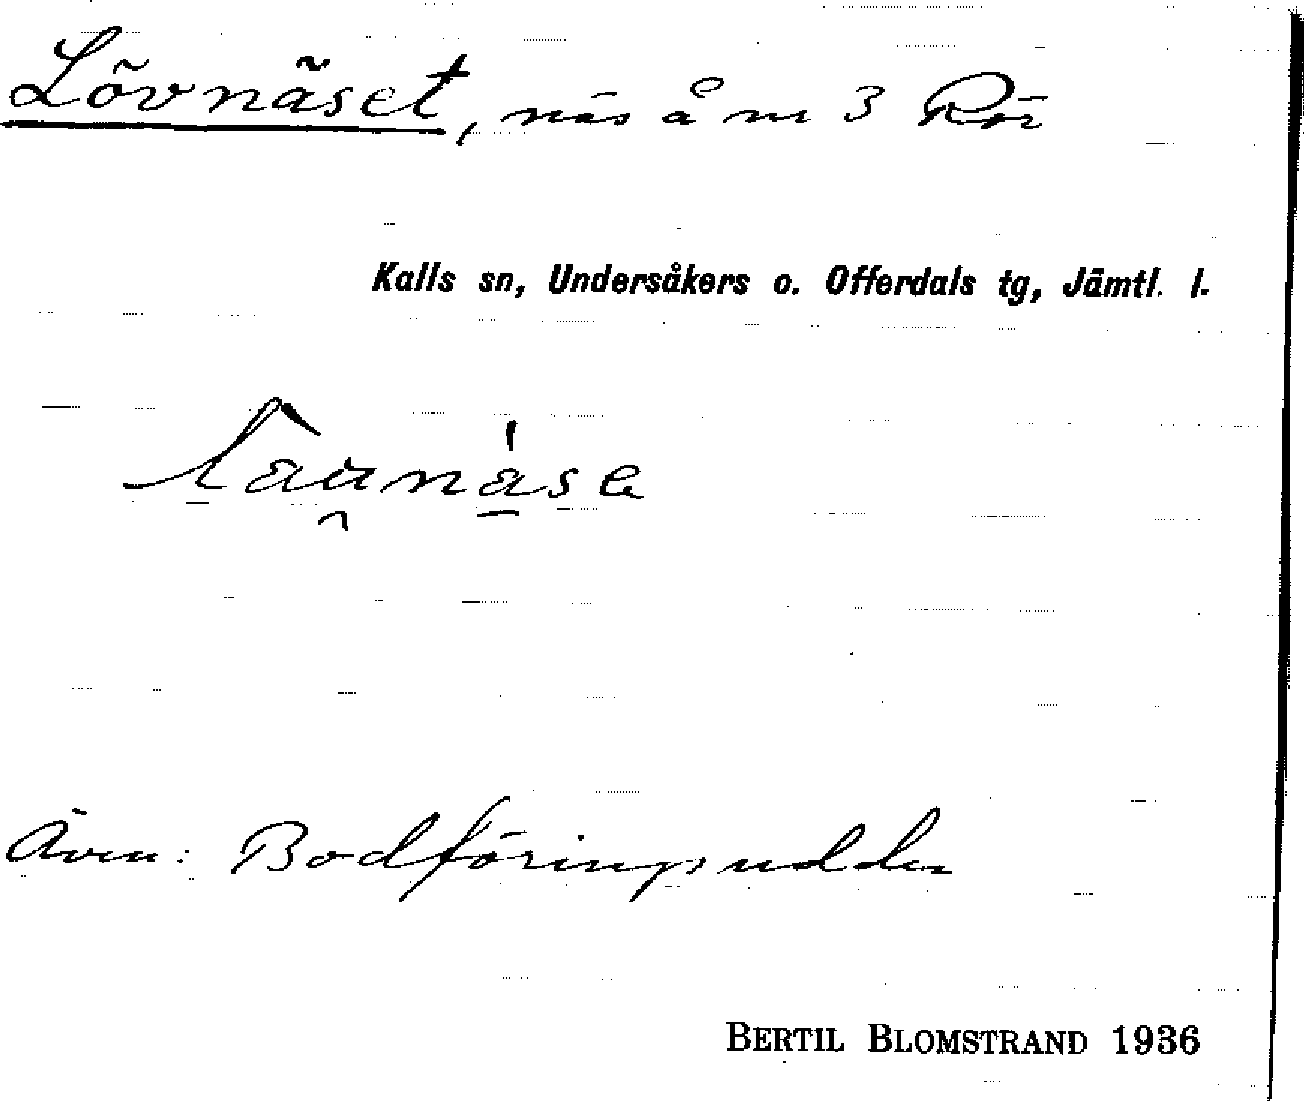 Lövnäset, näs å nr 3 Rör
Kalls sn, Undersåkers o. Offerdals tg, Jämtl. l.
Även: Bodföringsudden
BERTIL BLOMSTRAND 1936